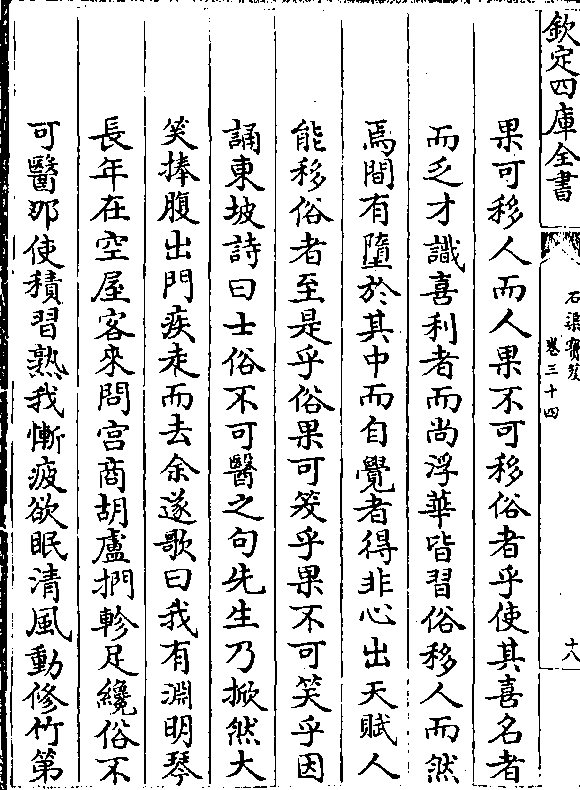 欽定四庫全書
石渠寶笈
卷三十四
十八
果可移人而人果不可移俗者乎使其喜名者
而乏才識喜利者而尚浮華皆習俗移人而然
焉間有墮於其中而自覺者得非心出天賦人
能移俗者至是乎俗果可笑乎果不可笑乎因
誦東坡詩曰士俗不可醫之句先生乃掀然大
笑捧腹出門疾走而去余遂歌曰我有淵明琴
長年在空屋客來問宫商胡盧捫軫足纔俗不
可醫那使積習熟我慚疲欲眠清風動修竹第